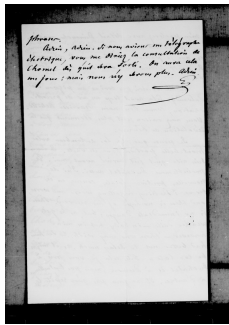 phrase.
Adieu, adieu. Si nous avions un télégraphe
électrique, vous me diriez la consultation de
Chomel dès qu'il sera sorti. On aura cela
un jour ; mais nous n'y serons plus. Adieu